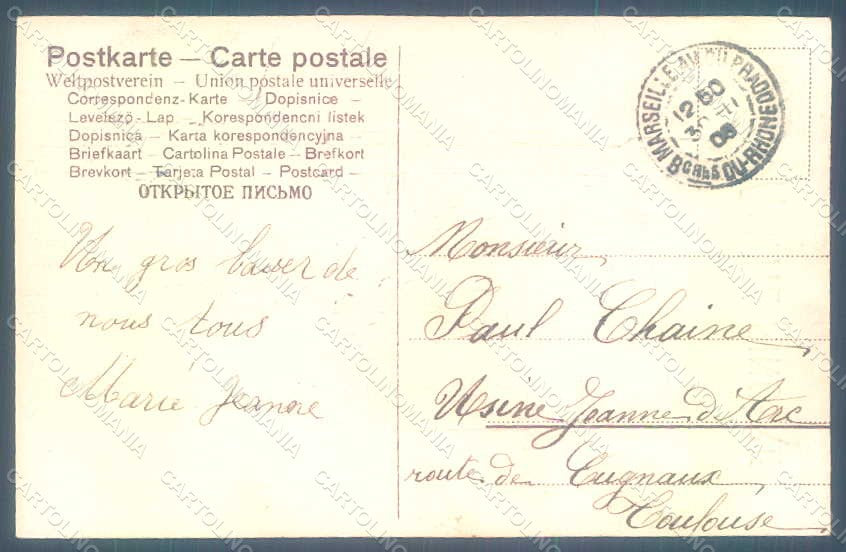 Postkarte — Carte postale
Weltpostverein — Union postale universelle
Correspondenz-Karte — Dopisnice —
Levelező-Lap — Korespondencni listek
Dopisnica — Karta korespondencyjna —
Briefkaart — Cartolina Postale — Brefkort
Brevkort — Tarjeta Postal — Postcard —
ОТКРЫТОЕ ПИСЬМО
Un gros baiser de
nous tous
Marie Jeanne
MARSEILLE AV. DU PRADO
BCHES DU-RHONE
12 50
30
08
Monsieur
Paul Chaine
Usine Jeanne d'Arc
route de Cugnaux
Toulouse
CARTOLINOMANIA